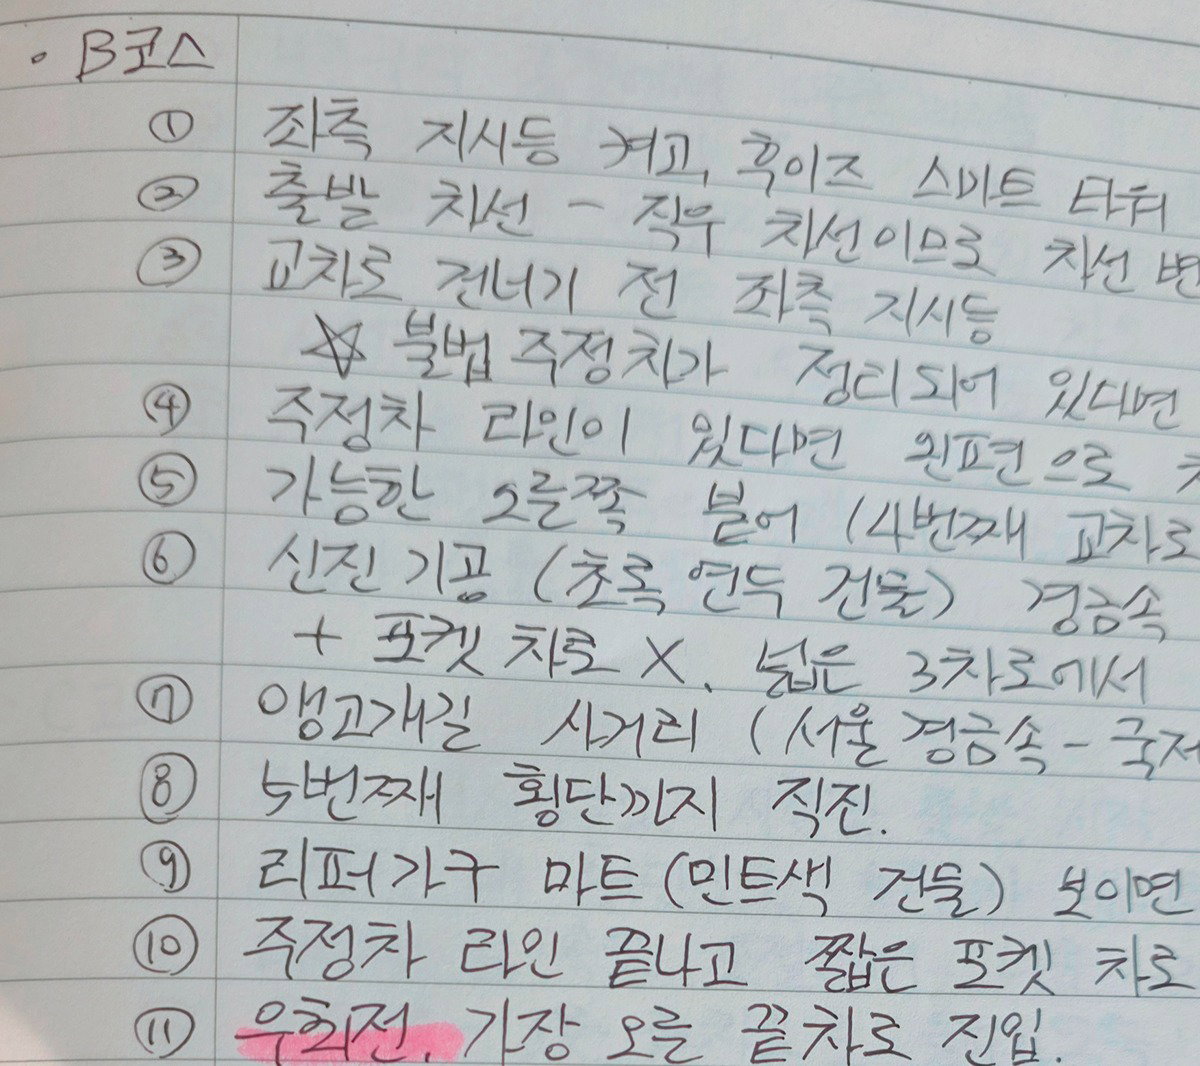 · B코스
① 좌측 지시등 켜고, 훅이즈 스마트 타워
② 출발 차선 - 직우 차선이므로 차선 변
③ 교차로 건너기 전 좌측 지시등
☆ 불법 주정차가 정리되어 있다면
④ 주정차 라인이 있다면 왼편으로
⑤ 가능한 오른쪽 붙어 (4번째 교차로
⑥ 신진기공 (초록 연두 건물) 경금속
+ 포켓 차로 X. 넓은 3차로에서
⑦ 앵고개길 사거리 (서울경금속 - 국제
⑧ 5번째 횡단까지 직진.
⑨ 리퍼가구 마트 (민트색 건물) 보이면
⑩ 주정차 라인 끝나고 짧은 포켓 차로
⑪ 우회전. 가장 오른 끝차로 진입.